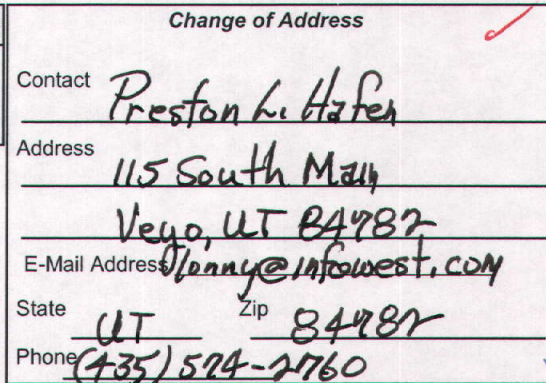 Change of Address
Contact Preston L. Hafen
Address 115 South Main
Veyo, UT 84782
E-Mail Address plonny@infowest.com
State UT Zip 84782
Phone (435) 574-2760